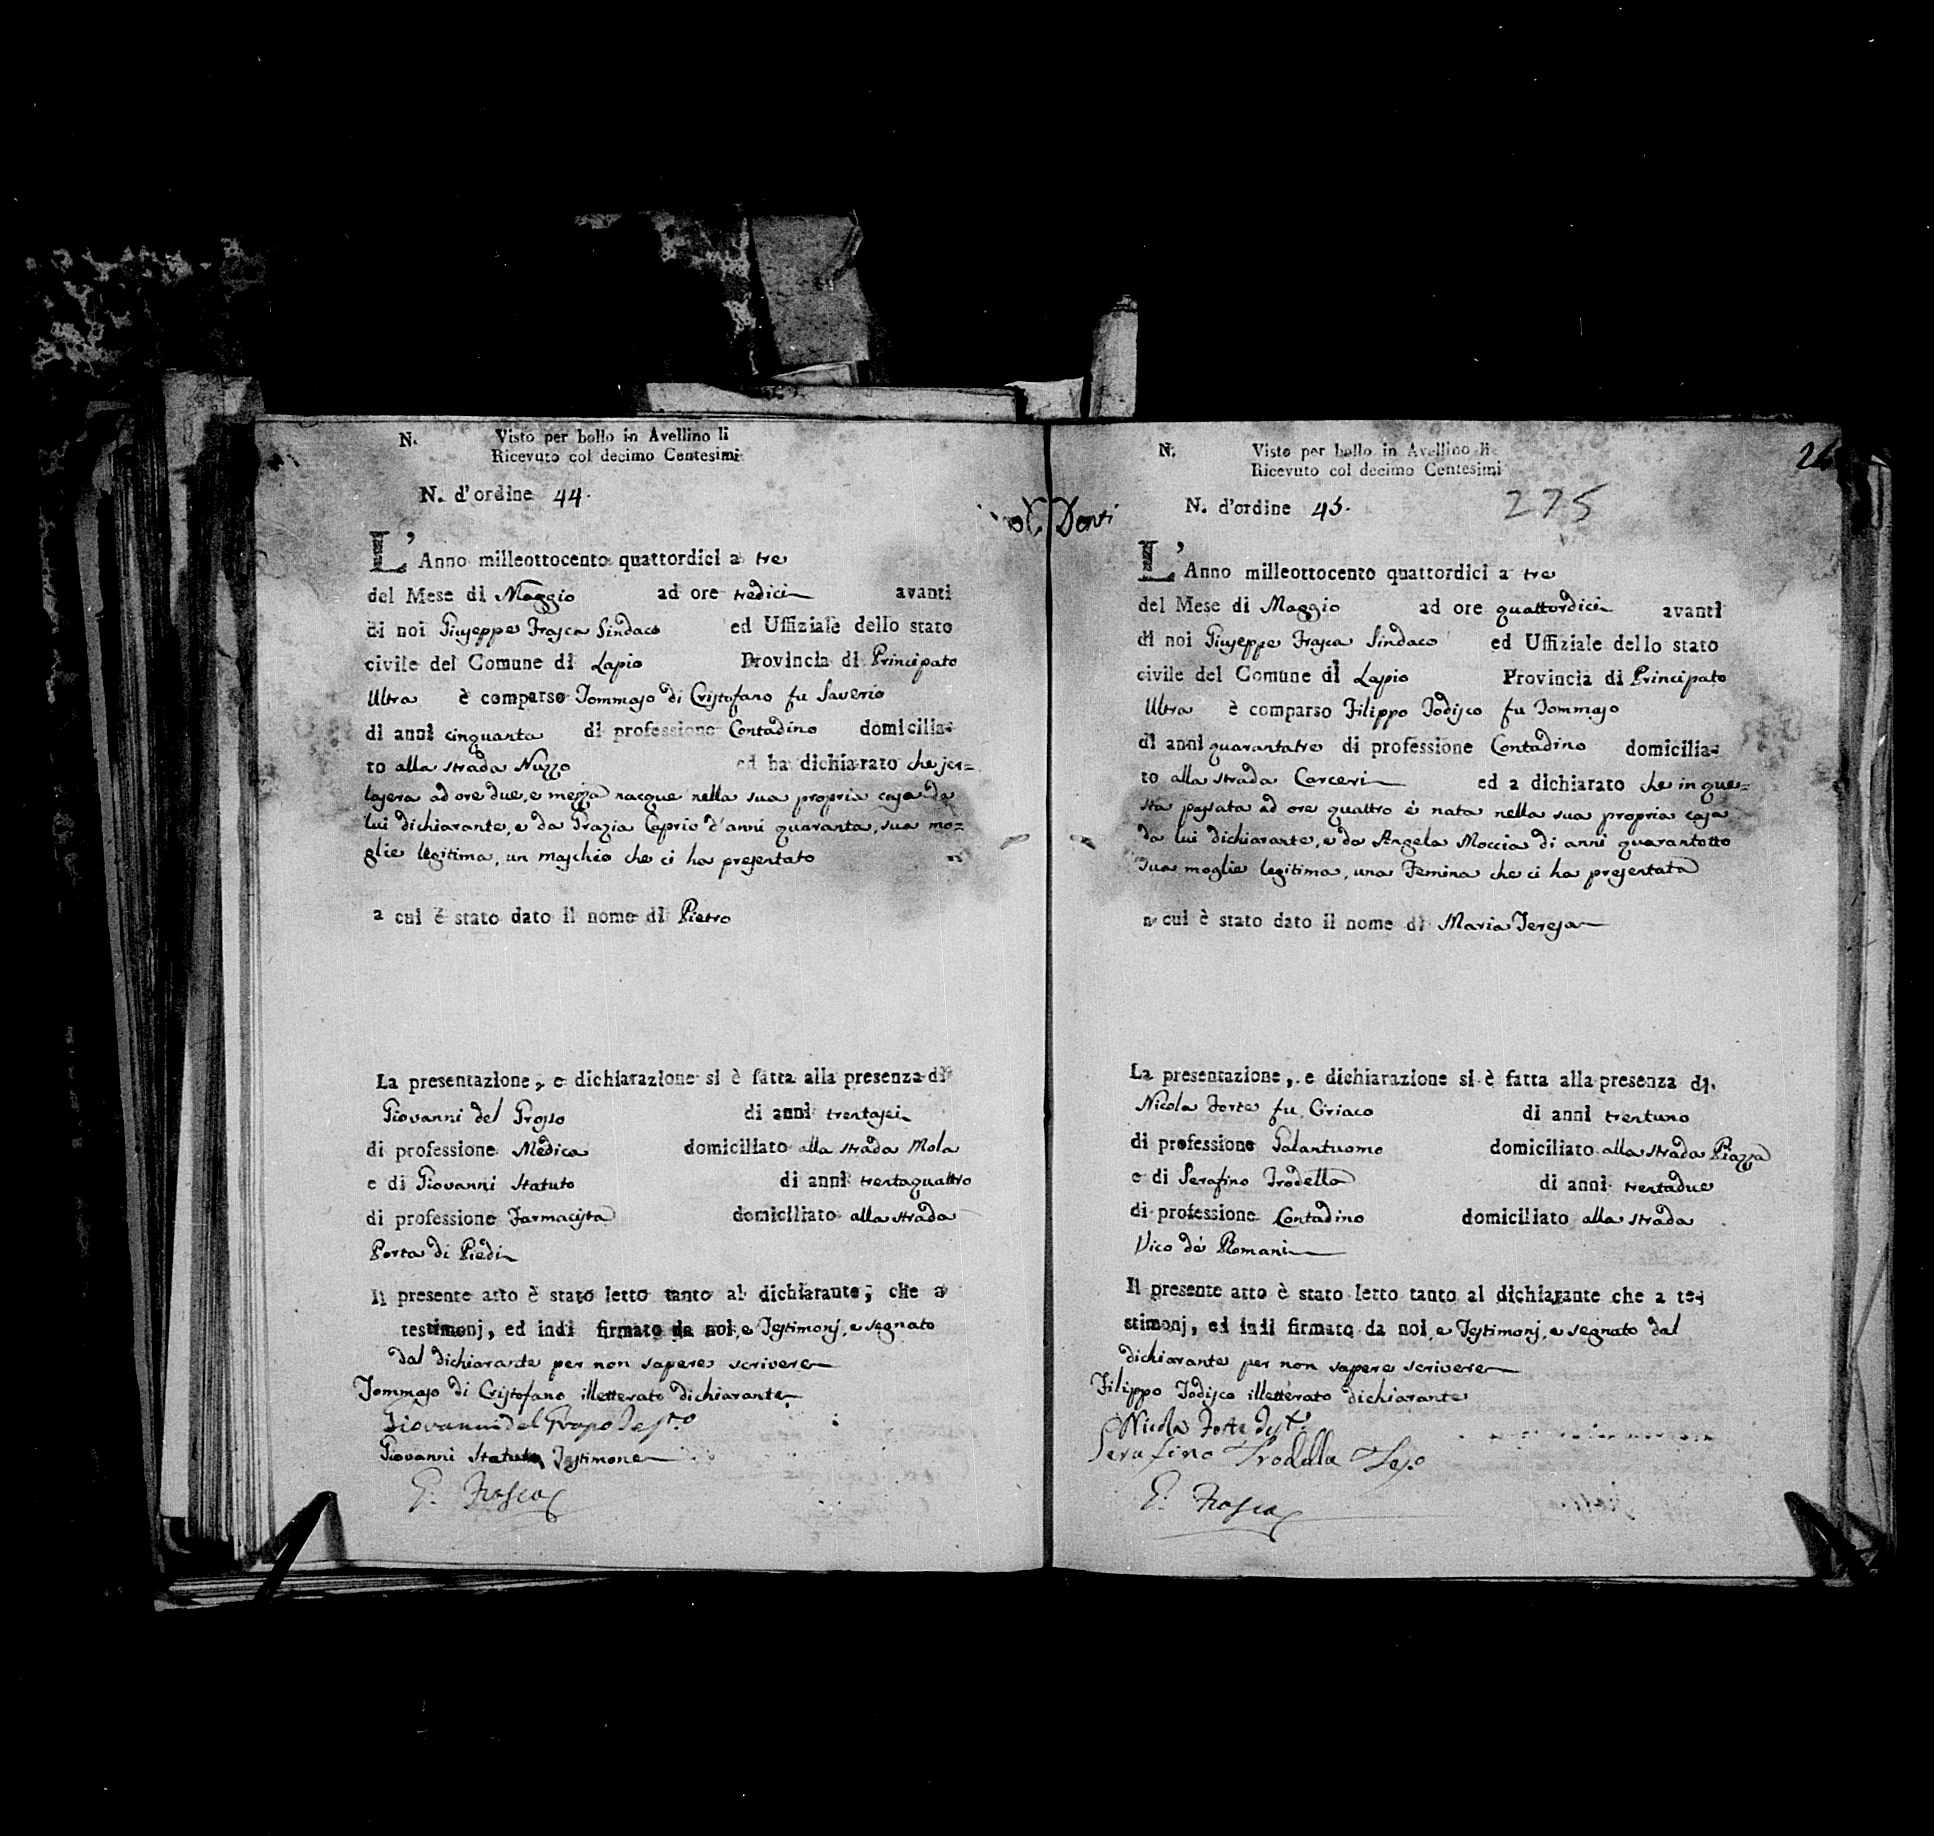 N.
Visto per bollo in Avellino li
Ricevuto col decimo Centesimi
N. d'ordine 44.
L'Anno milleottocento quattordici a tre
del Mese di Maggio ad ore tredici avanti
di noi Giuseppe Frasca Sindaco ed Uffiziale dello stato
civile del Comune di Lapio Provincia di Principato
Ultra è comparso Tommaso di Cristofano fu Saverio
di anni cinquanta di professione Contadino domicilia-
to alla strada Nuzzo ed ha dichiarato che jer=
lasera ad ore due, e mezza nacque nella sua propria casa da
lui dichiarante, e da Grazia Caprio d'anni quaranta, sua mo=
glie legitima, un maschio che ci ha presentato
a cui è stato dato il nome di Pietro
La presentazione, e dichiarazione si è fatta alla presenza di
Giovanni del Grosso di anni trentasei
di professione Medica domiciliato alla strada Mola
e di Giovanni Statuto di anni trentaquattro
di professione Farmacista domiciliato alla strada
Porta di Piedi
Il presente atto è stato letto tanto al dichiarante, che a
testimonj, ed indi firmato da noi, e Testimonj, e segnato
dal dichiarante per non sapere scrivere
Tommaso di Cristofano illetterato dichiarante
Giovanni del Grosso Test.o
Giovanni Statuto Testimone
G. Frasca
N.
Visto per bollo in Avellino li
Ricevuto col decimo Centesimi
N. d'ordine 45.
275
L'Anno milleottocento quattordici a tre
del Mese di Maggio ad ore quattordici avanti
di noi Giuseppe Frasca Sindaco ed Uffiziale dello stato
civile del Comune di Lapio Provincia di Principato
Ultra è comparso Filippo Todisco fu Tommaso
di anni quarantatre di professione Contadino domicilia-
to alla strada Carceri ed a dichiarato che in que=
sta passata ad ore quattro è nata nella sua propria casa
da lui dichiarante, e da Angela Moccia di anni quarantotto
sua moglie legitima, una Femina che ci ha presentata
a cui è stato dato il nome di Maria Teresa
La presentazione, e dichiarazione si è fatta alla presenza di
Nicola Forte fu Ciriaco di anni trentuno
di professione Galantuomo domiciliato alla strada Piazza
e di Serafino Trodella di anni trentadue
di professione Contadino domiciliato alla strada
Vico de' Romani
Il presente atto è stato letto tanto al dichiarante che a te-
stimonj, ed indi firmato da noi, e Testimonj, e segnato dal
dichiarante per non sapere scrivere
Filippo Todisco illetterato dichiarante
Nicola Forte
Serafino Trodella
G. Frasca